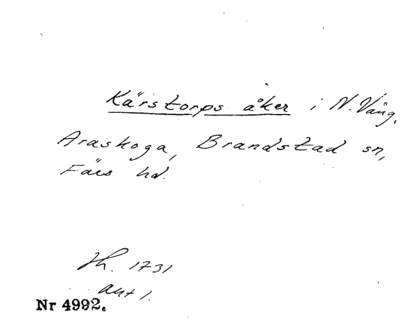 Kärstorps åker i N. Vång,
Araskoga, Brandstad sn,
Färs hd.
Lh. 1731
akt 1.
Nr 4992.